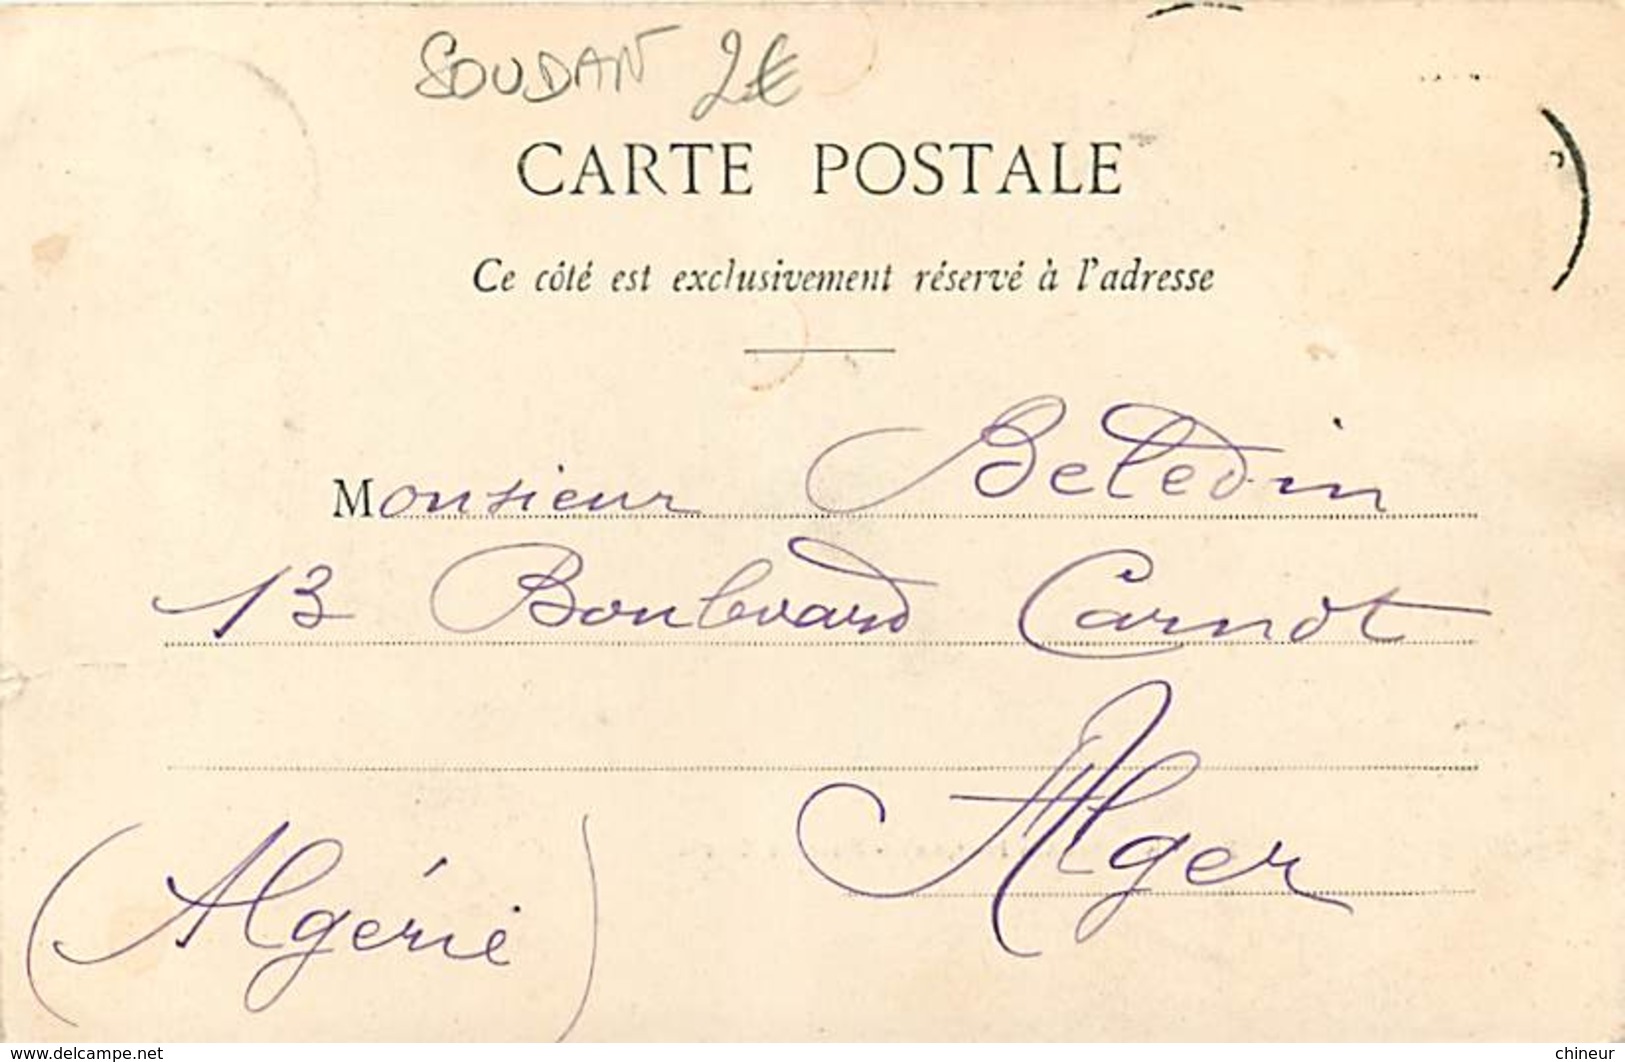 SOUDAN 2€
CARTE POSTALE
Ce côté est exclusivement réservé à l'adresse
Monsieur Beledin
13 Boulevard Carnot
Alger
(Algérie)
www.delcampe.net
chineur